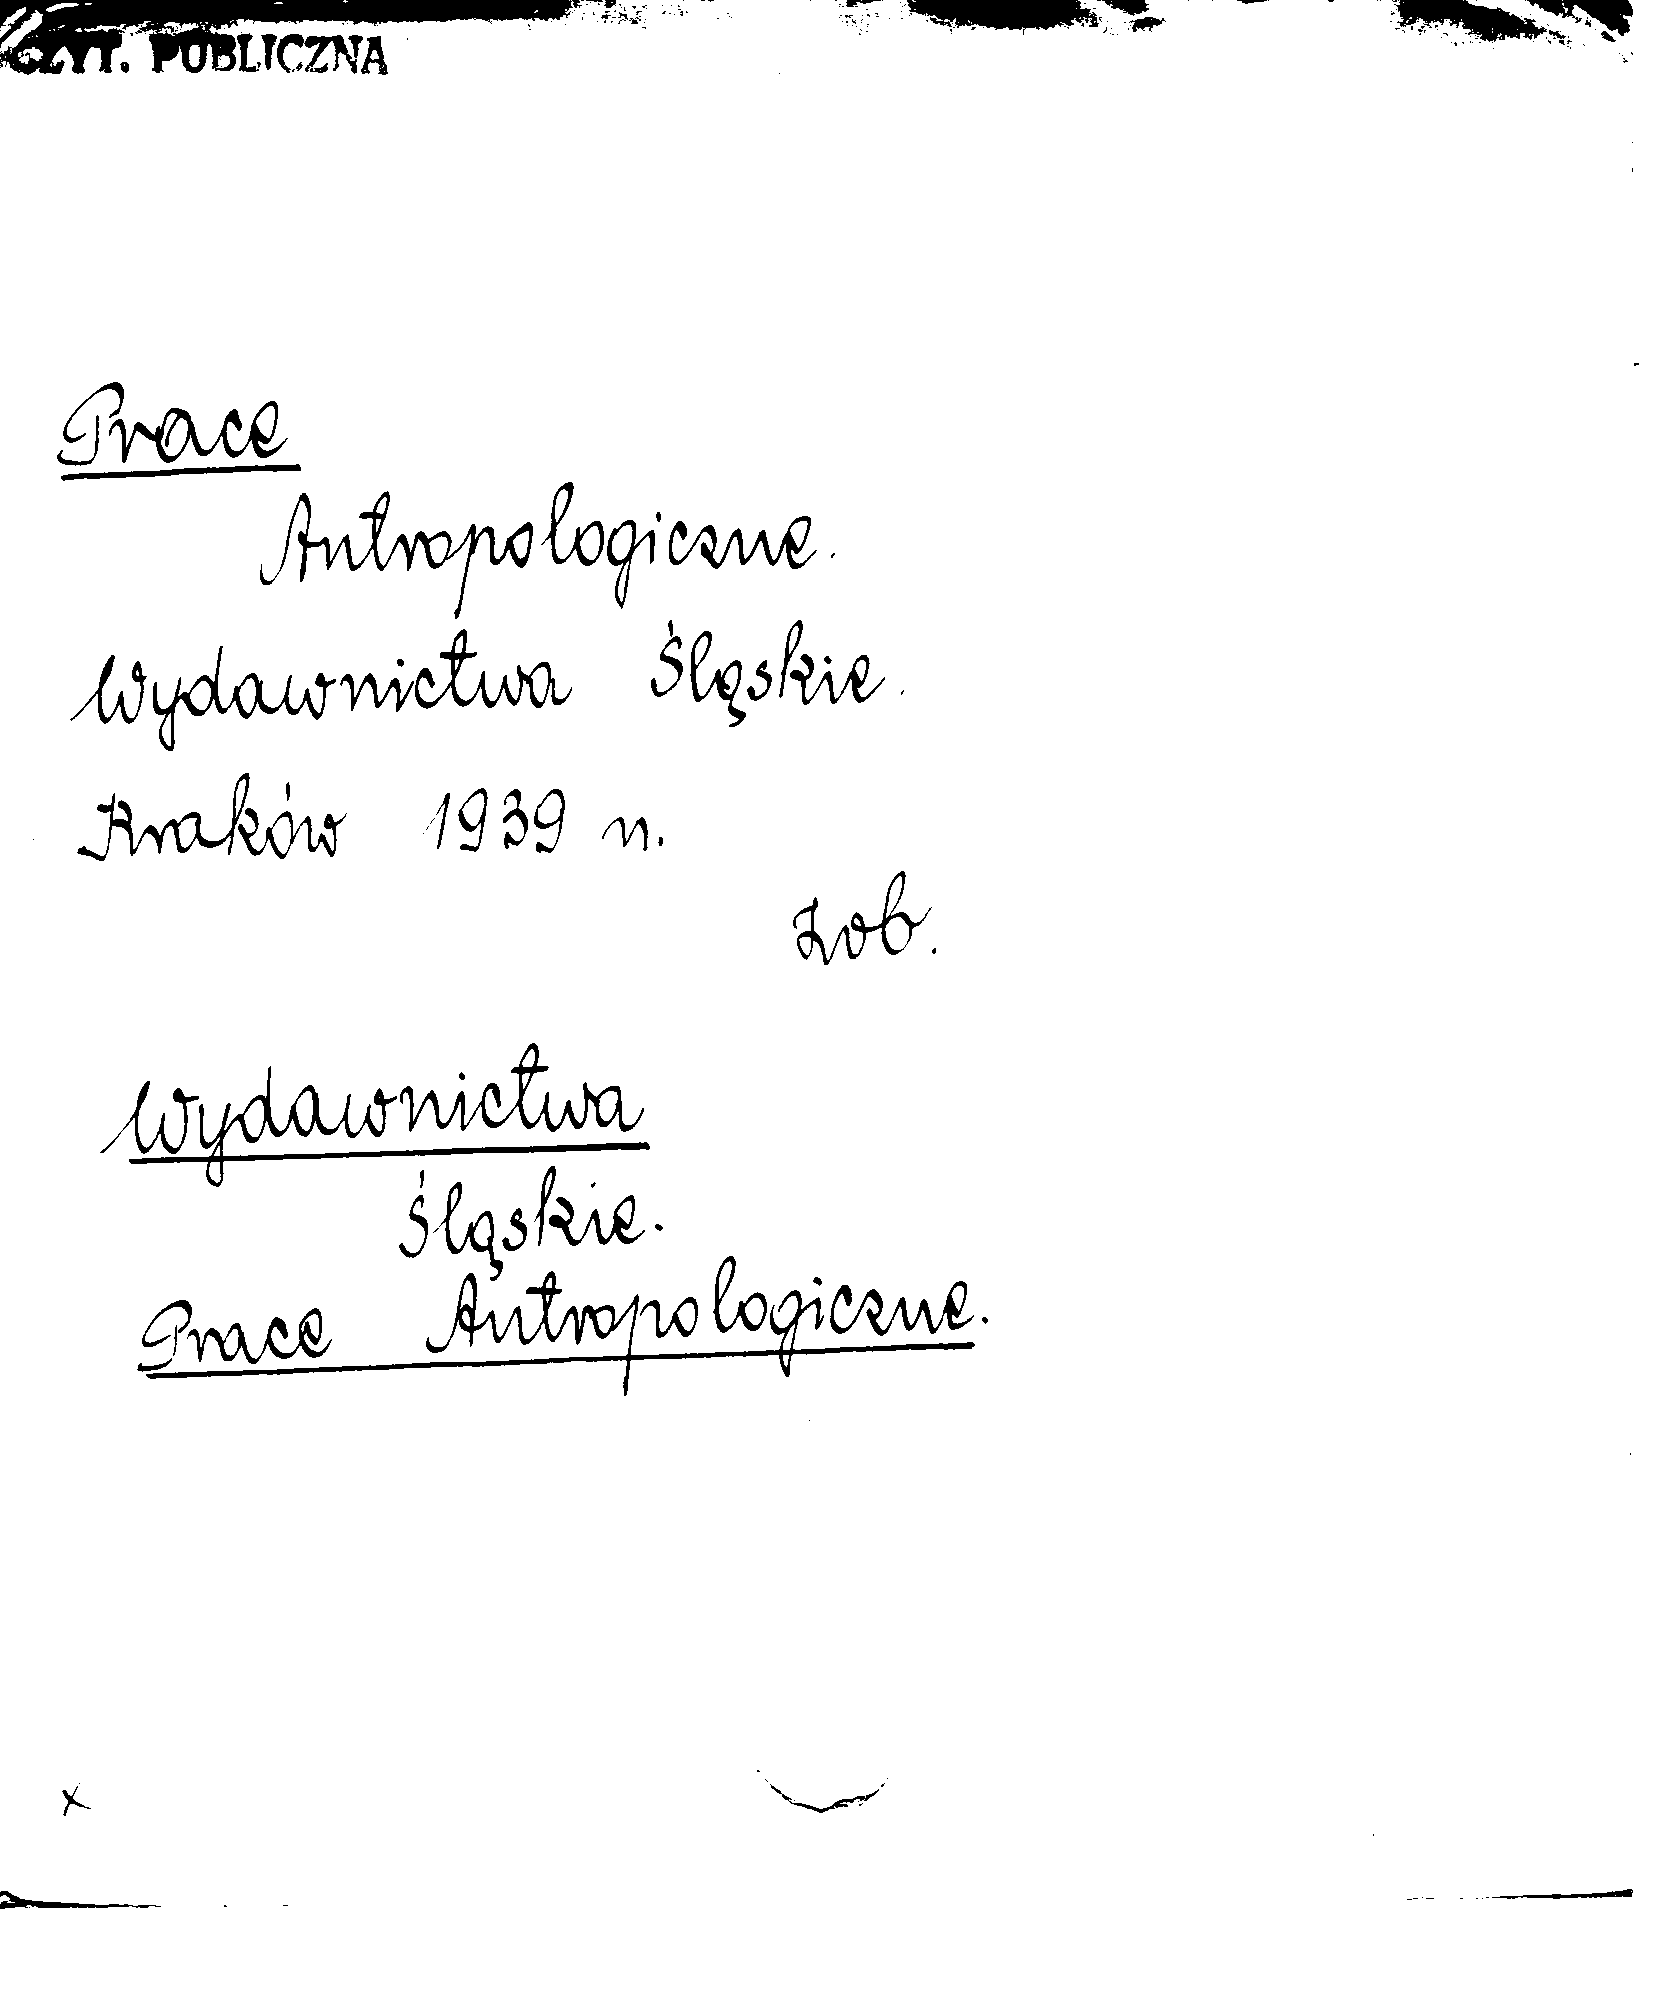 CZYT. PUBLICZNA
Prace
Antropologiczne.
Wydawnictwa Śląskie.
Kraków 1939 n.
Zob.
Wydawnictwa
Śląskie.
Prace Antropologiczne.
x